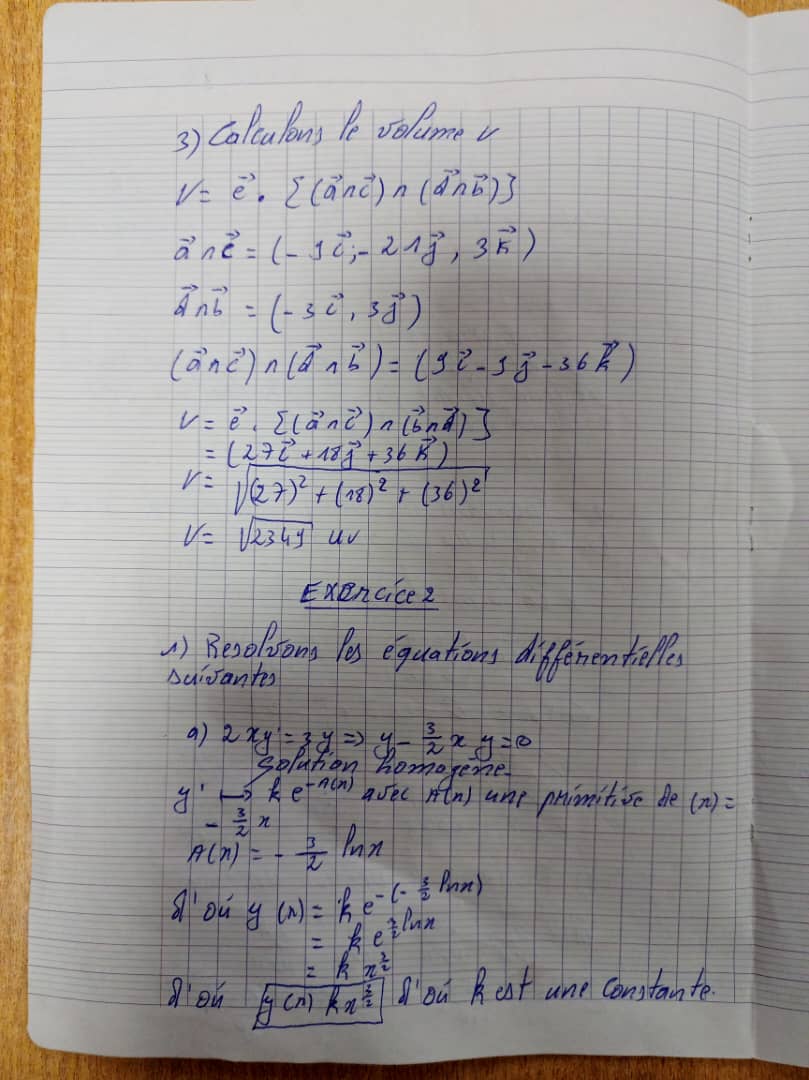 3) Calculons le volume v
V = e⃗ . [(a⃗ ∧ c⃗) ∧ (d⃗ ∧ b⃗)]
a⃗ ∧ c⃗ = (- 9i⃗; - 21j⃗, 3k⃗)
d⃗ ∧ b⃗ = (- 3i⃗, 3j⃗)
(a⃗ ∧ c⃗) ∧ (d⃗ ∧ b⃗) = (9i⃗ - 9j⃗ - 36k⃗)
V = e⃗ . [(a⃗ ∧ c⃗) ∧ (b⃗ ∧ d⃗)]
= (27i⃗ + 18j⃗ + 36k⃗)
V = √((27)² + (18)² + (36)²)
V = √2349 uv
Exercice 2
1) Resolvons les équations différentielles
suivantes
a) 2xy' = 3y => y - 3/2 x y = 0
solution homogène.
y' ↦ k e^(-A(x)) avec A(x) une primitive de (x) =
- 3/2 x
A(x) = - 3/2 lnx
d'où y (x) = k e^(-(-3/2 lnx))
= k e^(3/2 lnx)
= k x^(3/2)
d'où y(x) k x^(3/2) d'où k est une constante.